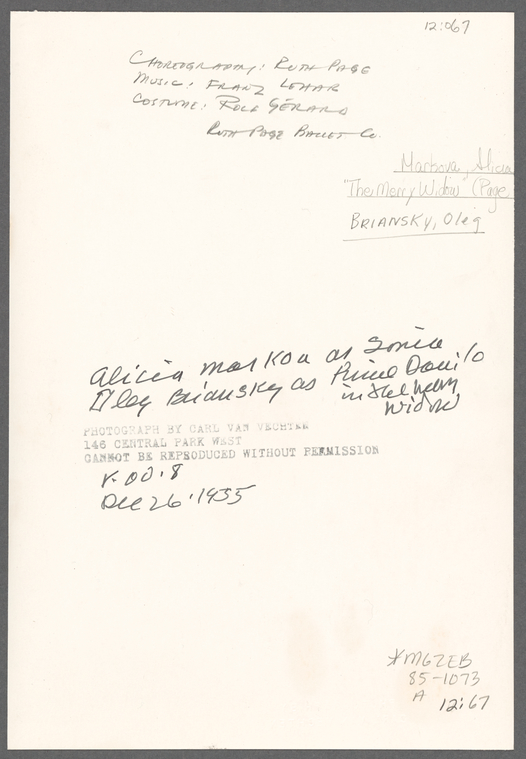 12:67
CHOREOGRAPHY: RUTH PAGE
MUSIC: FRANZ LEHAR
COSTUME: ROLF GÉRARD
RUTH PAGE BALLET Co.
Markova, Alicia
"The Merry Widow" (Page
BRIANSKY, Oleg
Alicia Markova as Sonia
Oleg Briansky as Prince Danilo
in the Merry
Widow
PHOTOGRAPH BY CARL VAN VECHTEN
146 CENTRAL PARK WEST
CANNOT BE REPRODUCED WITHOUT PERMISSION
Dec 26, 1955
*MGZEB
85-1073
A
12:67